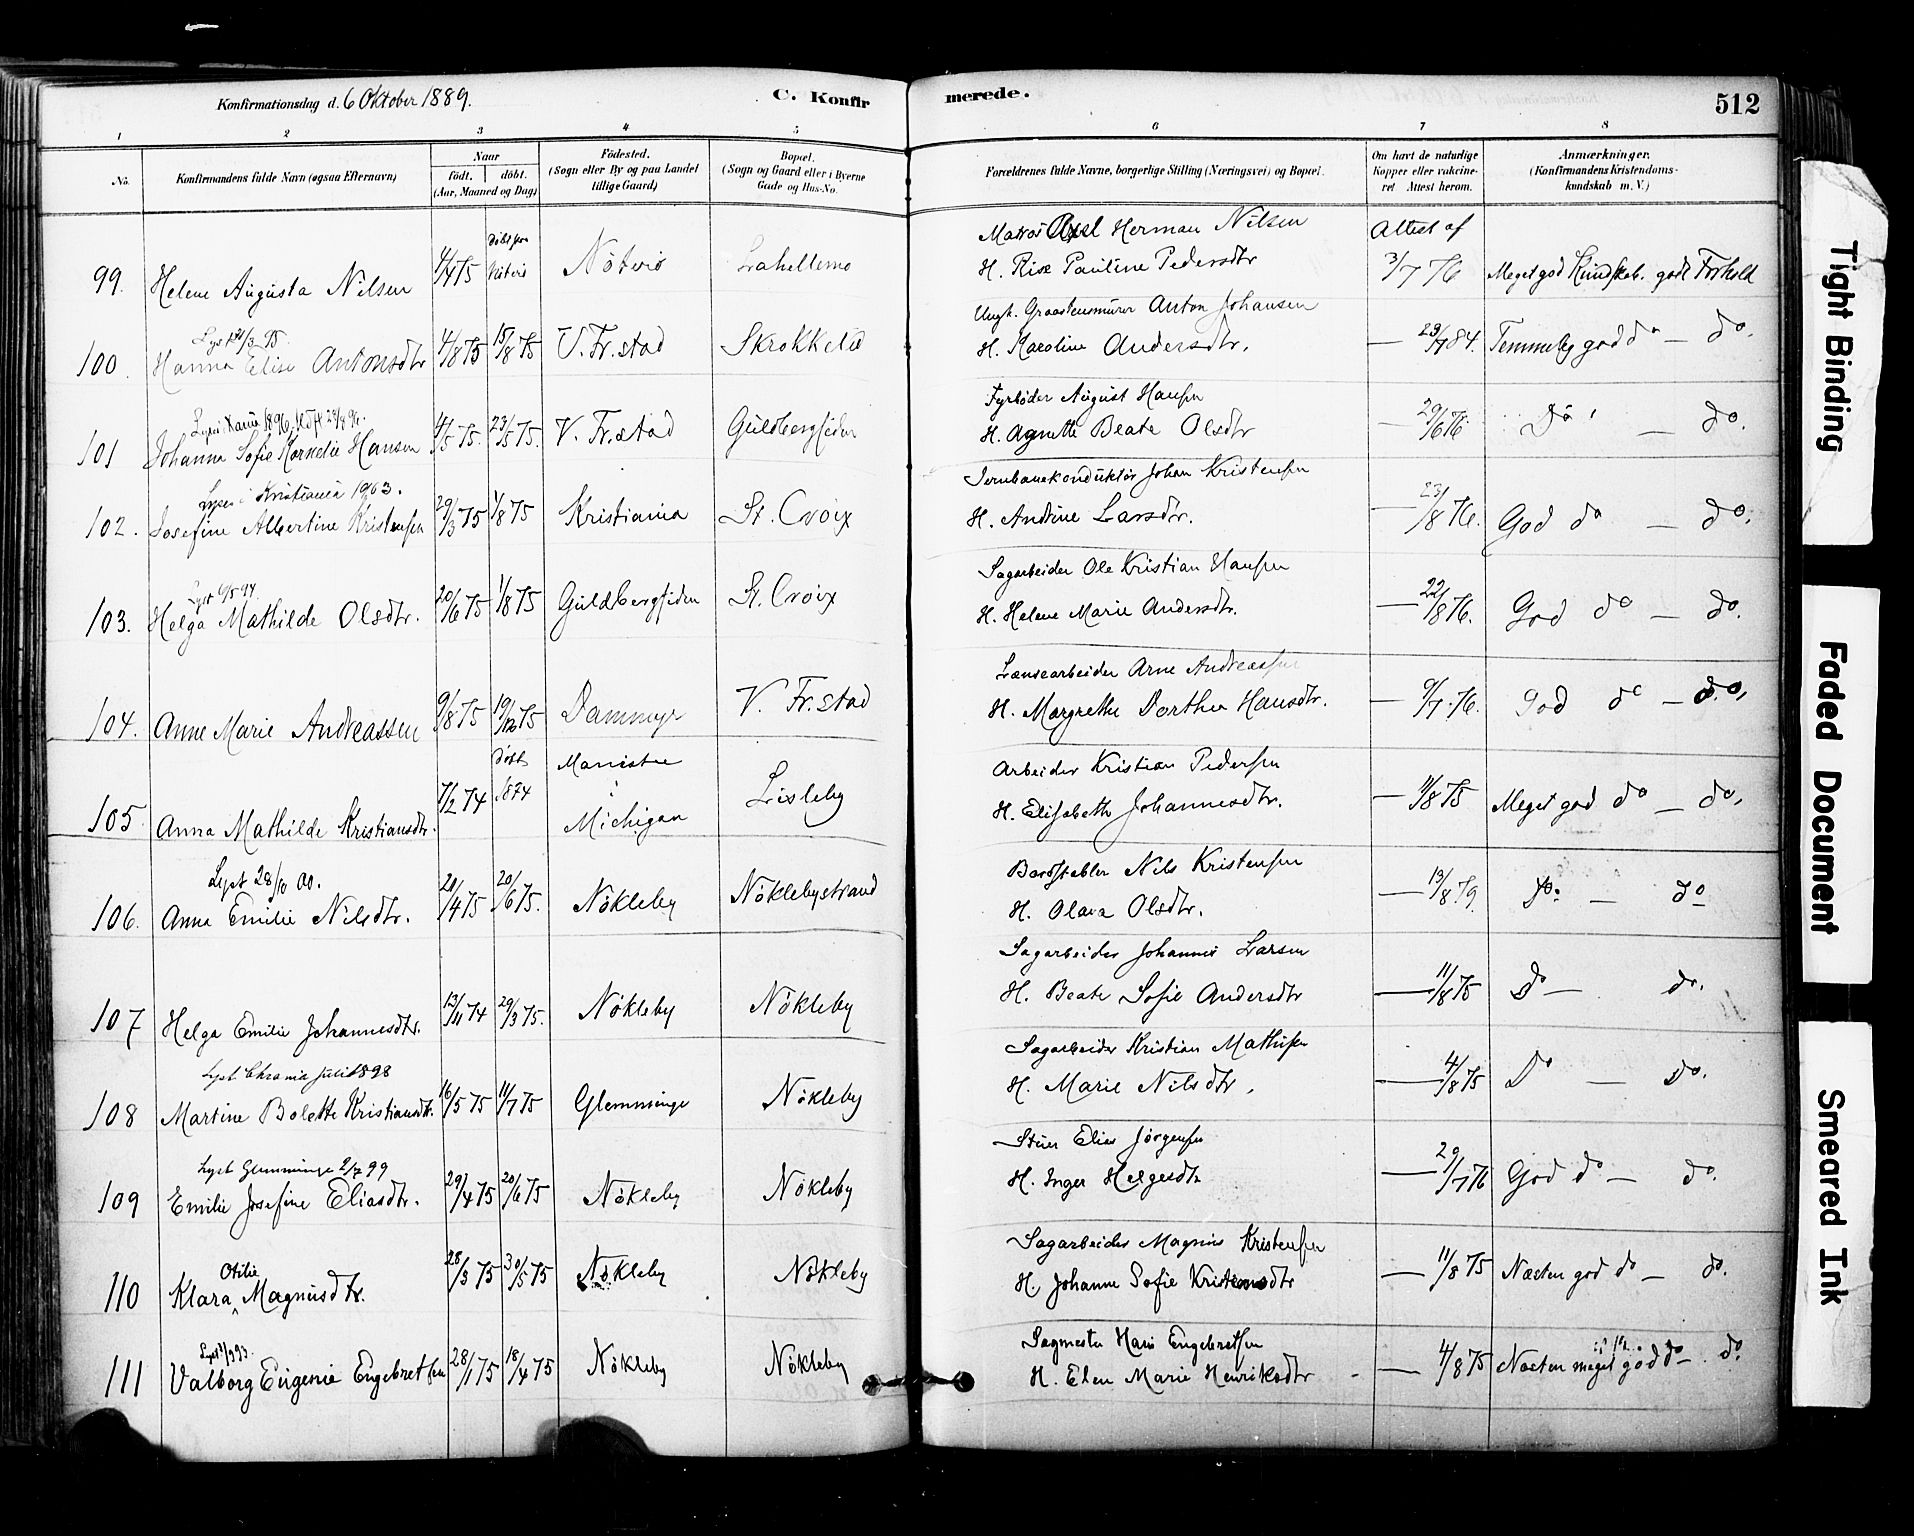 Konfirmationsdag d. 6 Oktober 1889. C. Konfir merede. 512
1 2 3 4 5 6 7 8
No. Konfirmandens fulde Navn (ogsaa Efternavn) Naar født. døbt. (Aar, Maaned og Dag) Födested. (Sogn eller By og paa Landet tillige Gaard) Bopæl. (Sogn og Gaard eller i Byerne Gade og Hus-No. Forældrenes fulde Navne, borgerlige Stilling (Næringsvei) og Bopæl. Om havt de naturlige Kopper eller vakcineret Attest herom. Anmærkninger. (Konfirmandens Kristendomskundskab m. V.)
Matros Axel Herman Nilsen Attest af
99. Helene Augusta Nilsen 4/4 75 Nöterö Lahellemo H. Pauline Pedersdtr 3/7 76 Meget god Kundskab. godt Forhold
Ungk. Graastensmurer Anton Johansen
100. Hanna Elise Antonsdtr 4/8 75 15/8 75 V. Fr.stad Skrokkelö H. Karoline Andersdtr. — 23/7 84. Temmelig god do — do.
Fyrbøder August Hansen
101 Johanna Sofie Kornelie Hansen 4/5 75. 23/5 75. V. Fr.stad Guldbergsiden H. Agnette Beate Olsdtr — 29/6 76. Do — do.
Lyses i Kristiania 1903. Jernbanekonduktör Johan Kristensen
102. Josefine Albertine Kristensen 29/3 75 1/8 75 Kristiania St. Croix H. Andrine Larsdtr. — 23/8 76. God do — do.
Lyst 6/5 94. Sagarbeider Ole Kristian Hansen
103. Helga Mathilde Olsdtr. 20/6 75 1/8 75 Guldbergsiden St. Croix H. Helene Marie Andersdtr. — 22/8 76. God do — do.
Lænsearbeider Arne Andreassen
104. Anne Marie Andreassen 9/8 75 19/12 75 Dammyr V. Fr.stad H. Margrethe Dorthea Hansdtr. — 9/7. 76. God do — do.
döbt 1874 Manistee Arbeider Kristian Pedersen
105. Anna Mathilde Kristiansdtr. 7/2 74 i Michigan Lisleby H. Elisabeth Johannesdtr. — 11/8 75 Meget god do — do.
Lyst 28/10 00. Bordstabler Nils Kristensen
106. Anna Emilie Nilsdtr. 20/4 75 20/6 75. Nökleby Nöklebystrand H. Olava Olsdtr. — 13/8 79. Do. — do
Sagarbeider Johannes Larsen
107 Helga Emilie Johannesdtr. 13/11 74 29/3 75. Nökleby Nökleby H. Beate Sofie Andersdtr — 11/8 75 Do — do.
Lyst Chrania juli 1898 Sagarbeider Kristian Mathisen
108 Martine Bolette Kristiansdtr. 16/5 75 11/7 75 Glemminge Nökleby H. Marie Nilsdtr. — 4/8 75 Do — do.
Lyst Glemminge 2/7 99 Stuer Elias Jörgensen
109 Emilie Josefine Eliasdtr. 29/4 75 20/6 75 Nökleby Nökleby H. Inger Helgesdtr — 29/7 76 God do — do.
Otilie Sagarbeider Magnus Kristensen
110 Klara ^ Magnusdtr. 28/3 75 30/5 75 Nökleby Nökleby H. Johanne Sofie Kristiansdtr — 11/8 75 Næsten god do — do.
Sagmester Hans Engebretsen
111 Valborg Eugenie Engebretsen 28/1 75 18/4 75 Nökleby Nökleby H. Elen Marie Henriksdtr — 4/8 75 Næsten meget god do — do.
Tight Binding
Faded Document
Smeared Ink